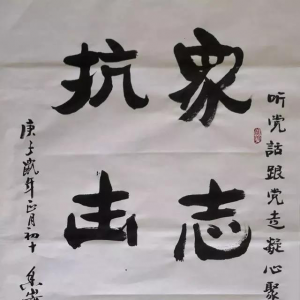 听党話跟党走凝心聚
眾志
抗击
庚子歲年正月初十